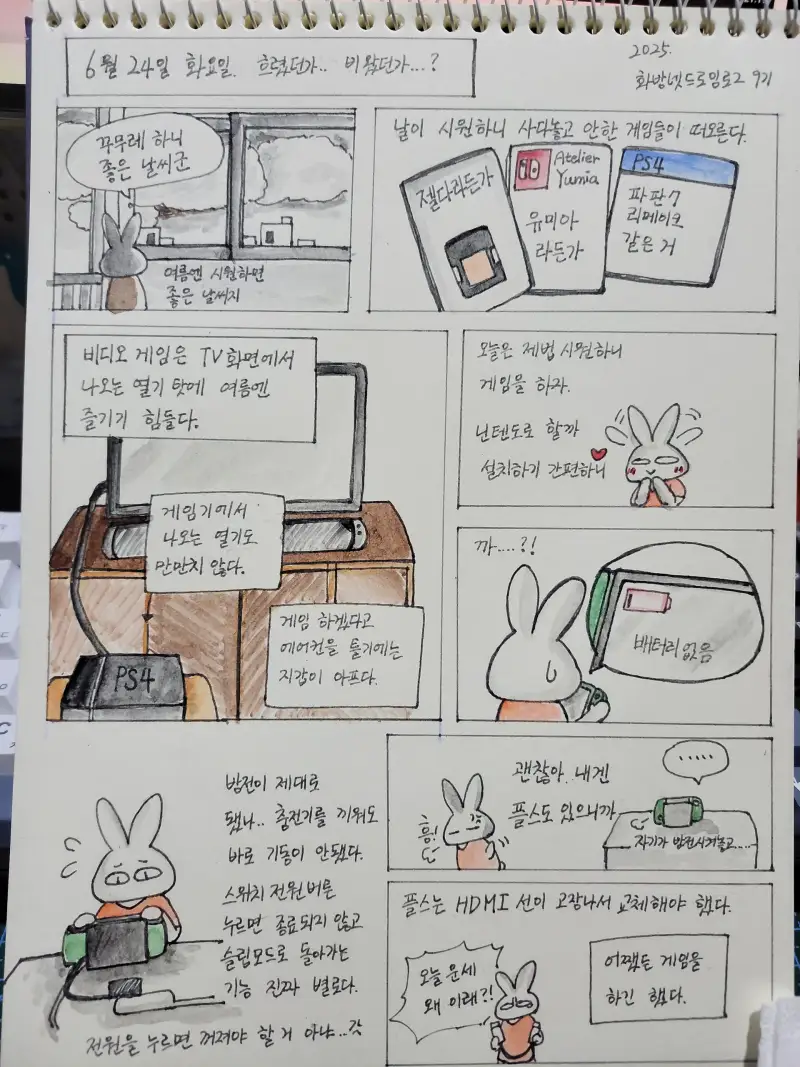 6월 24일 화요일. 흐렸던가.. 비왔던가...?
2025.
화방넷드로잉로그 9기
꾸무레 하니
좋은 날씨군
여름엔 시원하면
좋은 날씨지
날이 시원하니 사다놓고 안한 게임들이 떠오른다.
젤다라든가
Atelier
Yumia
유미아
라든가
PS4
파판7
리메이크
같은 거
비디오 게임은 TV화면에서
나오는 열기 탓에 여름엔
즐기기 힘들다.
게임기에서
나오는 열기도
만만치 않다.
게임 하겠다고
에어컨을 틀기에는
지갑이 아프다.
PS4
오늘은 제법 시원하니
게임을 하자.
닌텐도로 할까
설치하기 간편하니
까....?!
배터리없음
방전이 제대로
됐나.. 충전기를 끼워도
바로 기동이 안됐다.
스위치 전원버튼
누르면 종료되지 않고
슬립모드로 돌아가는
기능 진짜 별로다.
전원을 누르면 꺼져야 할 거 아냐..갓
괜찮아. 내겐
플스도 있으니까
흥!
.....
자기가 방전시켜놓고....
플스는 HDMI 선이 고장나서 교체해야 했다.
오늘 운세
왜 이래?!
어쨌든 게임을
하긴 했다.